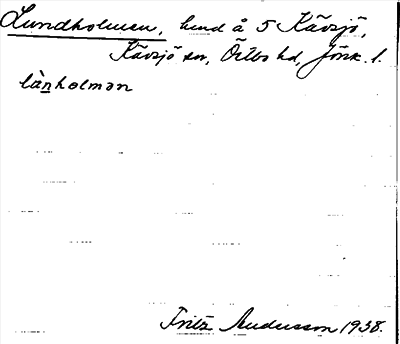 Lundholmen, lund å 5 Kävsjö,
Kävsjö sn, Östbo hd, Jönk. l.
lànholmən
Fritz Andersson 1938.